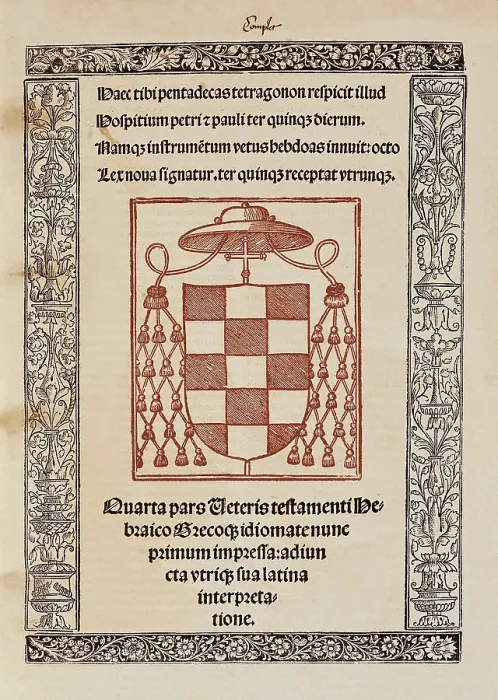 Complet
Haec tibi pentadecas tetragonon respicit illud
Hospitium petri ⁊ pauli ter quinqꝫ dierum.
Namqꝫ instrumẽtum vetus hebdoas innuit: octo
Lex noua signatur. ter quinqꝫ receptat vtrunqꝫ.
Quarta pars Ueteris testamenti He-
braico Grecoqꝫ idiomate nunc
primum impressa: adiun
cta vtriqꝫ sua latina
interpreta-
tione.